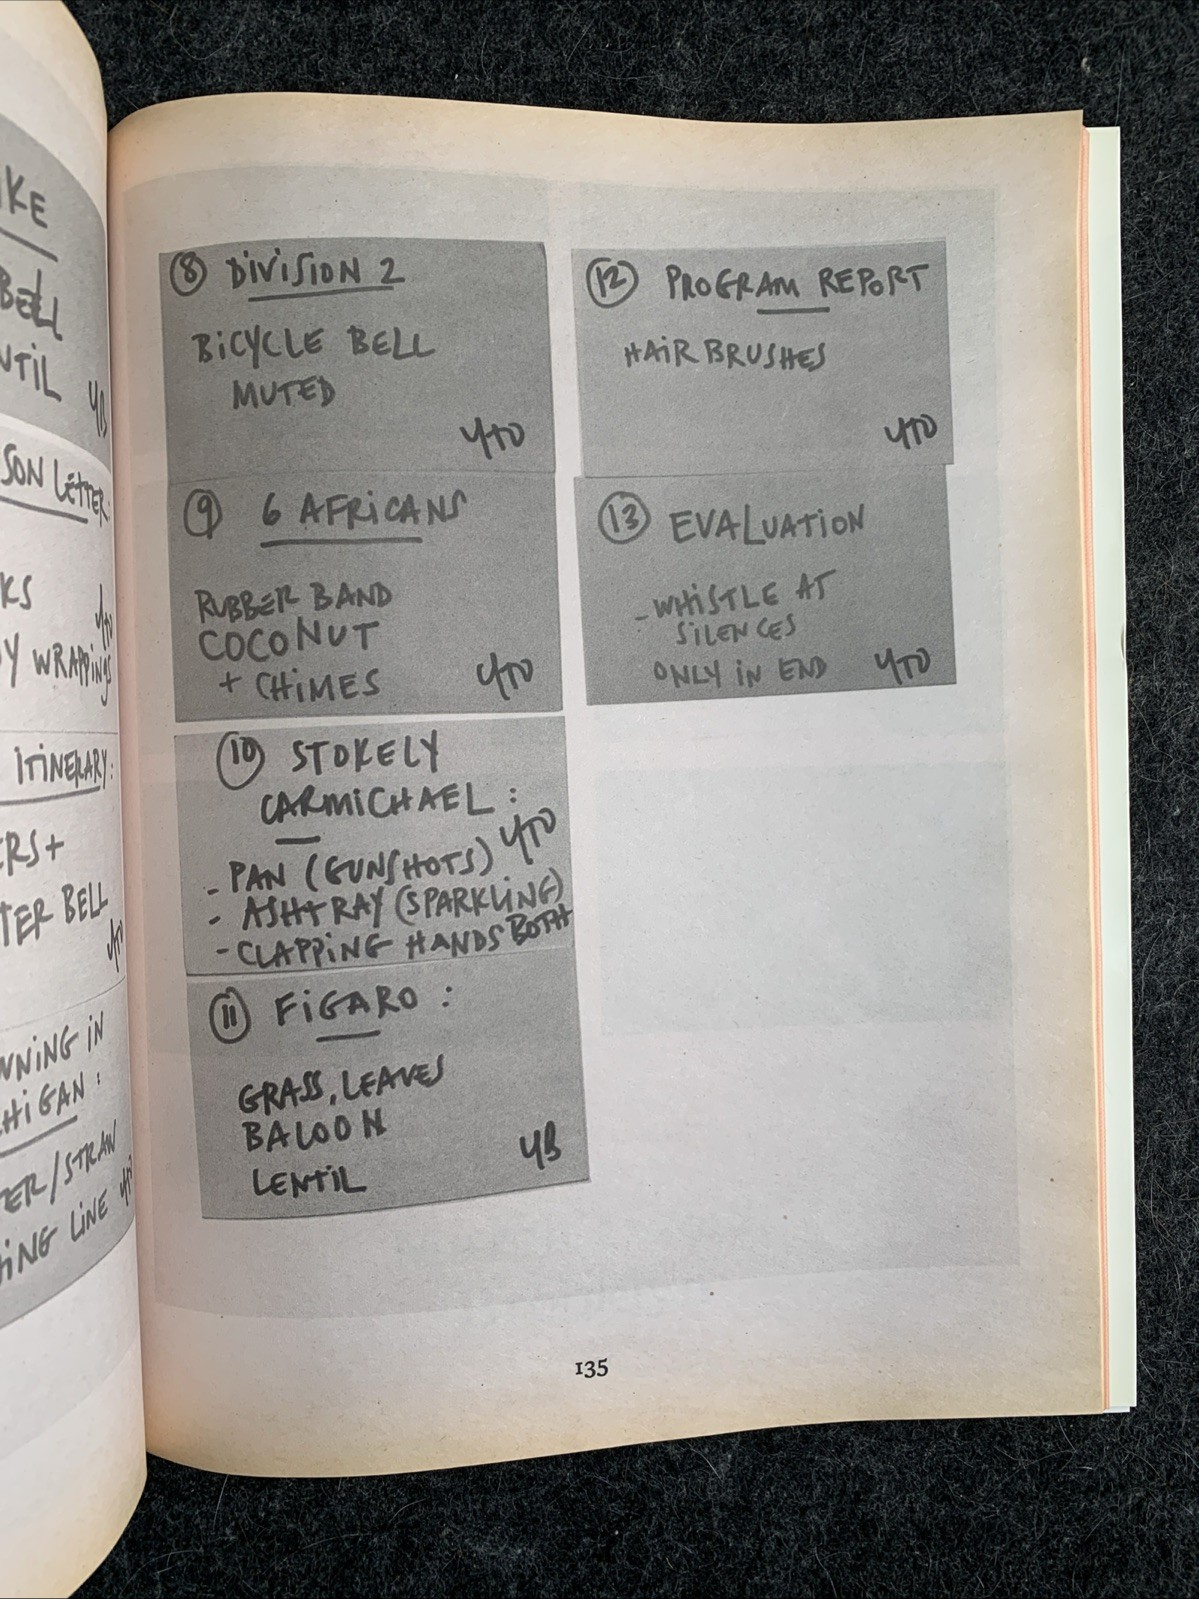 BELL
YB
LETTER:
WRAPPINGS
YTO
ITINERARY:
BELL
YTO
IN
LINE
⑧ DIVISION 2
BICYCLE BELL
MUTED
YTO
⑨ 6 AFRICANS
RUBBER BAND
COCONUT
+ CHIMES YTO
⑩ STOKELY
CARMICHAEL:
YTO
- PAN (GUNSHOTS)
- ASHTRAY (SPARKLING)
- CLAPPING HANDS BOTH
⑪ FIGARO:
GRASS, LEAVES
BALOON
LENTIL
YB
⑫ PROGRAM REPORT
HAIRBRUSHES
YTO
⑬ EVALUATION
- WHISTLE AT
SILENCES
ONLY IN END YTO
135